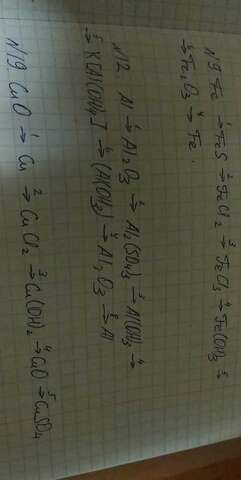 N19. Fe →¹ FeS →² FeCl₂ →³ FeCl₃ →⁴ Fe(OH)₃ →⁵
→ Fe₂O₃ →⁶ Fe.
N12. Al →¹ Al₂O₃ →² Al₂(SO₄)₃ →³ Al(OH)₃ →⁴
→⁵ K[Al(OH)₄] →⁶ (Al(OH)₃) →⁷ Al₂O₃ →⁸ Al
N19. CuO →¹ Cu →² CuCl₂ →³ Cu(OH)₂ →⁴ CuO →⁵ CuSO₄